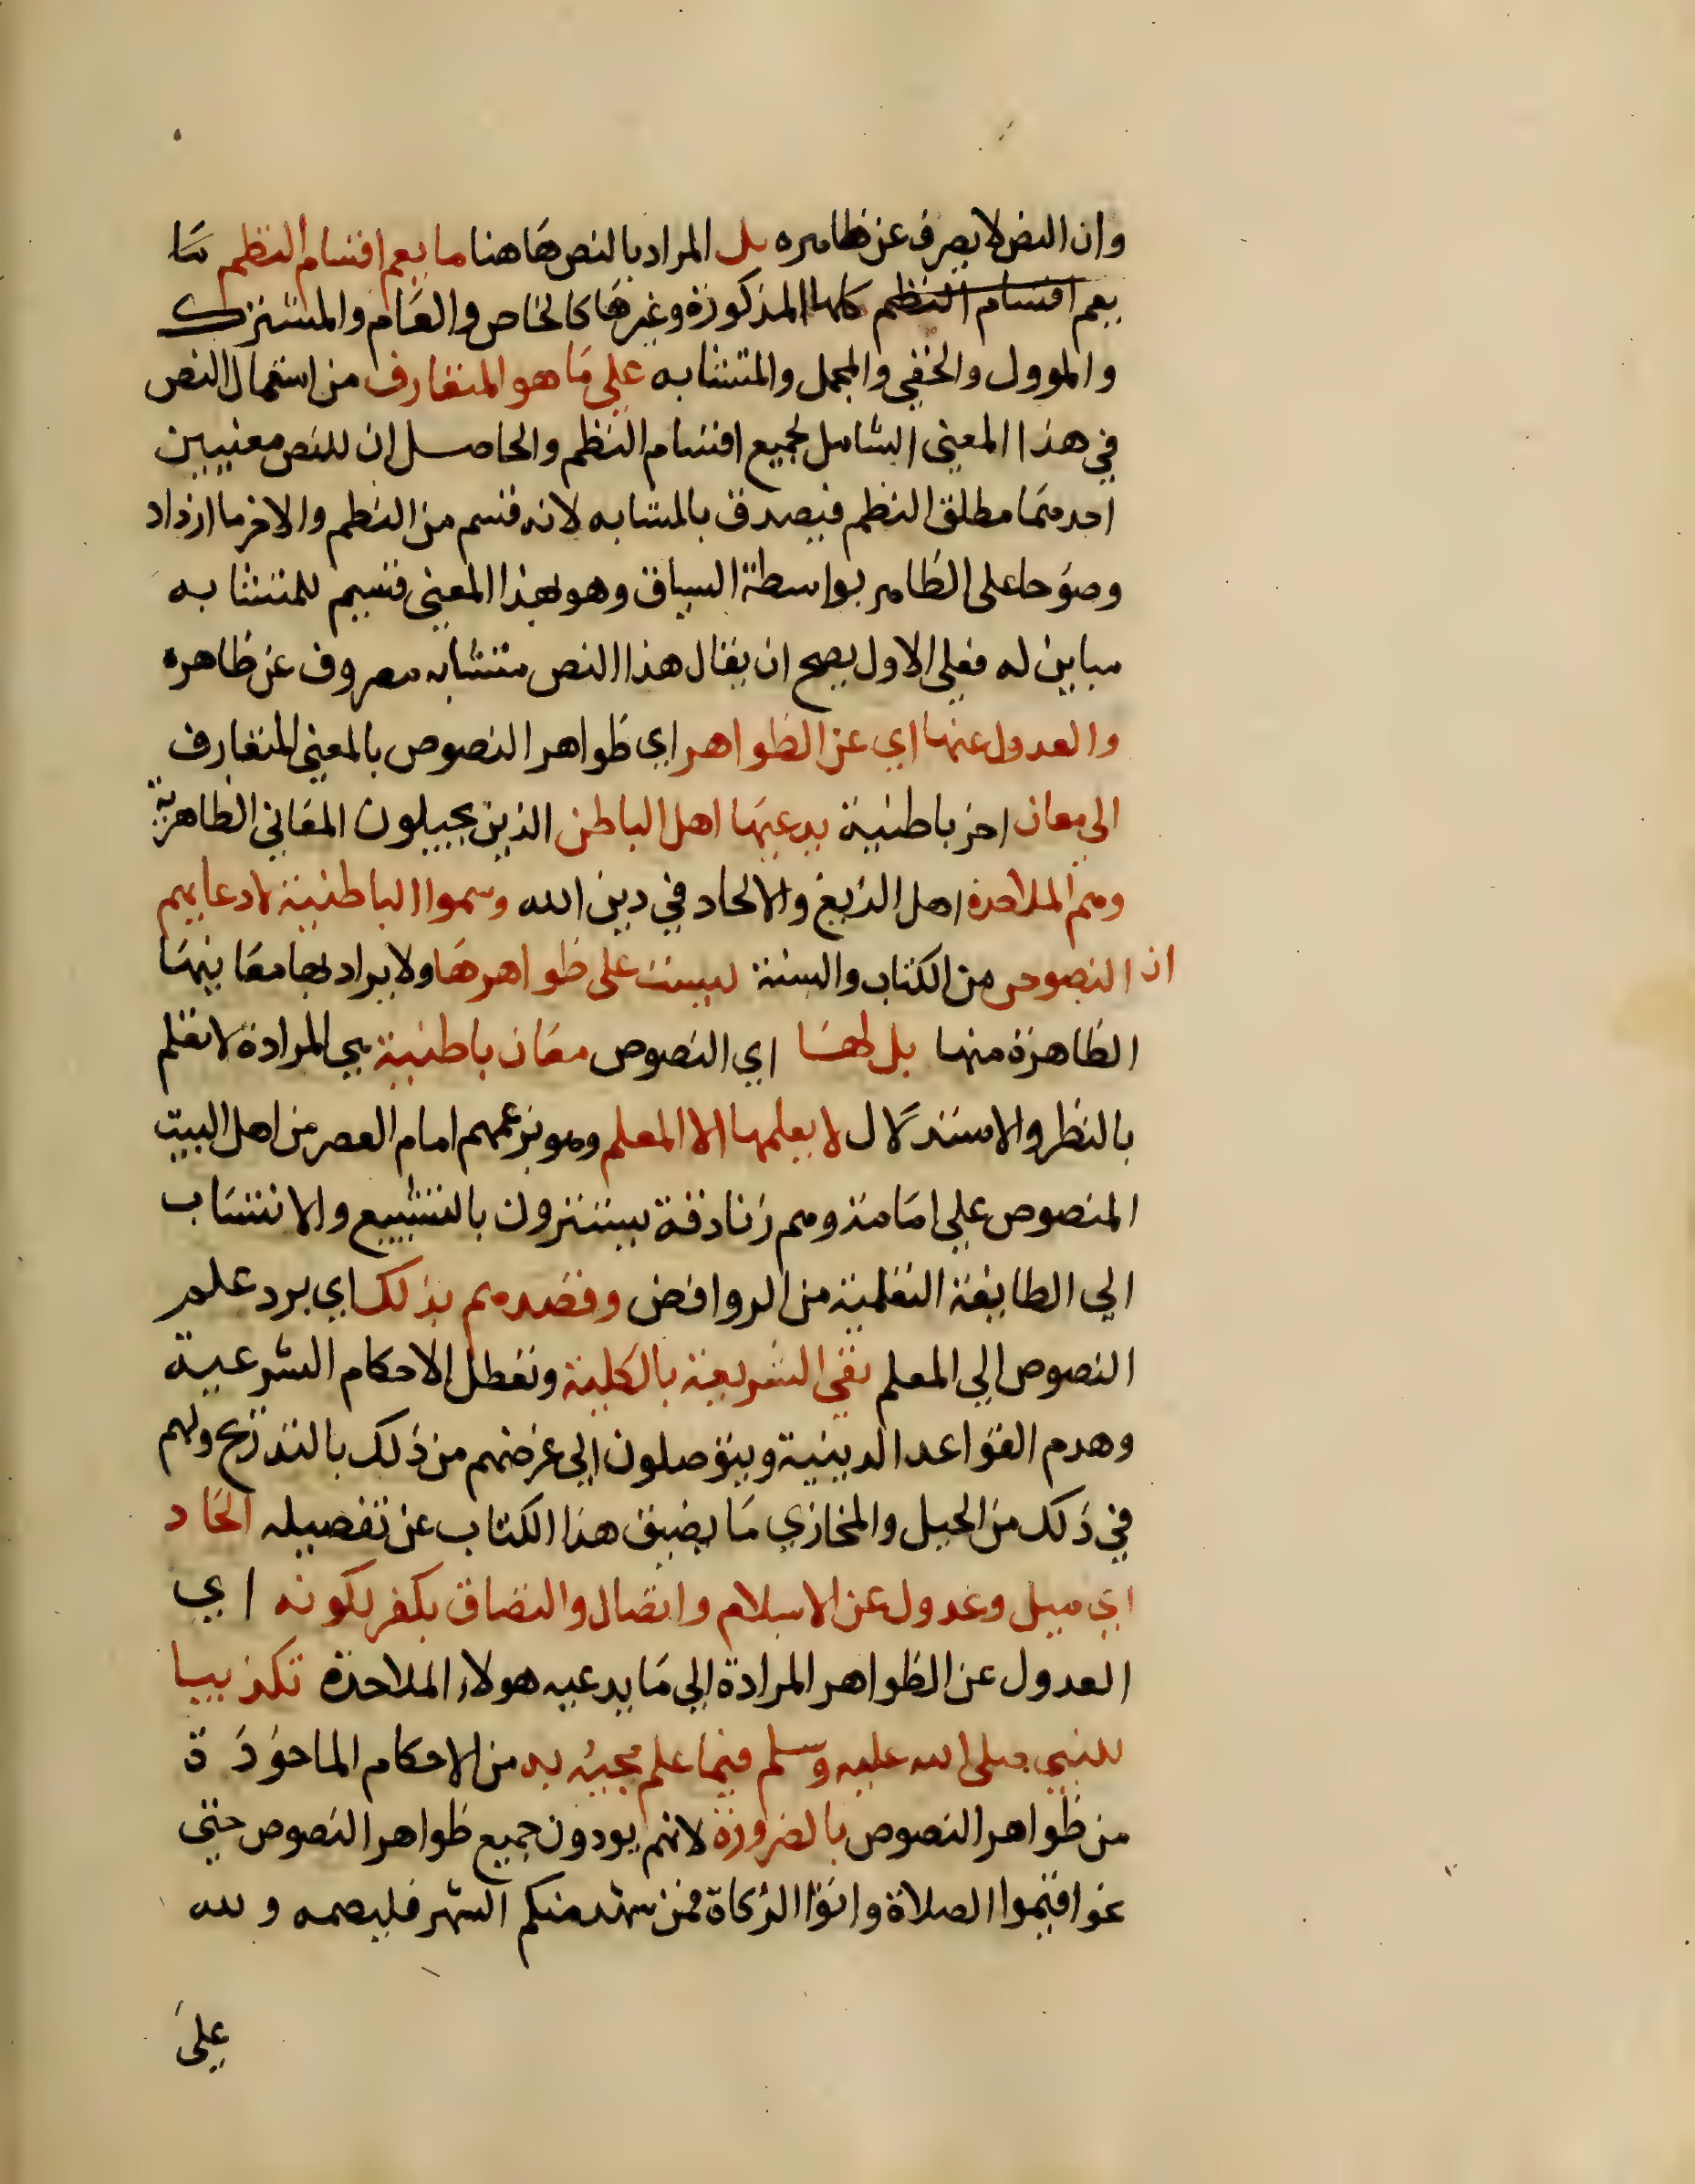 وان النص لا يصرف عن ظاهره بل المراد بالنص هاهنا ما يعم اقسام النظم ما
يعم اقسام النظم كلها المذكورة وغيرها كالخاص والعام والمشترك
والموول والخفي والمجمل والمتشابه علي ما هو المتعارف من استعمال النص
في هذا المعني الشامل لجميع اقسام النظم والحاصل ان للنص معنيين
احدهما مطلق النظم فيصدق بالمتشابه لانه قسم من النظم والاخر ما ازداد
وضوحا علي الظاهر بواسطة السياق وهو بهذا المعني قسيم للمتشابه
مباين له فعلي الاول يصح ان يقال هذا النص متشابه مصروف عن ظاهره
والعدول عنها اي عن الظواهر اي ظواهر النصوص بالمعني المتعارف
الي معان اخر باطنية يدعيها اهل الباطن الذين يحيلون المعاني الظاهرية
وهم الملاحدة اهل الزيغ والالحاد في دين الله وسموا الباطنية لادعايهم
ان النصوص من الكتاب والسنة ليست علي ظواهرها ولا يراد بها معانيها
الظاهرة منها بل لها اي النصوص معان باطنية هي المرادة لا تعلم
بالنظر والاستدلال لا يعلمها الا المعلم وهو بزعمهم امام العصر من اهل البيت
المنصوص علي امامته وهم زنادقة يستترون بالتشييع والانتساب
الي الطايفة التعلمية من الروافض وقصدهم بذلك اي برد علم
النصوص الي المعلم نفي الشريعة بالكلية وتعطل الاحكام الشرعية
وهدم القواعد الدينية ويتوصلون الي غرضهم من ذلك بالتدرج ولهم
في ذلك من الحيل والمخازي ما يضيق هذا الكتاب عن تفصيله الحاد
اي ميل وعدول عن الاسلام واتصال والتصاق بكفر لكونه اي
العدول عن الظواهر المرادة الي ما يدعيه هولاء الملاحدة تكذيبا
للنبي صلي الله عليه وسلم فيما علم مجييه به من الاحكام الماخوذة
من ظواهر النصوص بالضرورة لانهم يودون جميع ظواهر النصوص حتي
نحو اقيموا الصلاة واتوا الزكاة فمن شهد منكم الشهر فليصمه ولله
علي